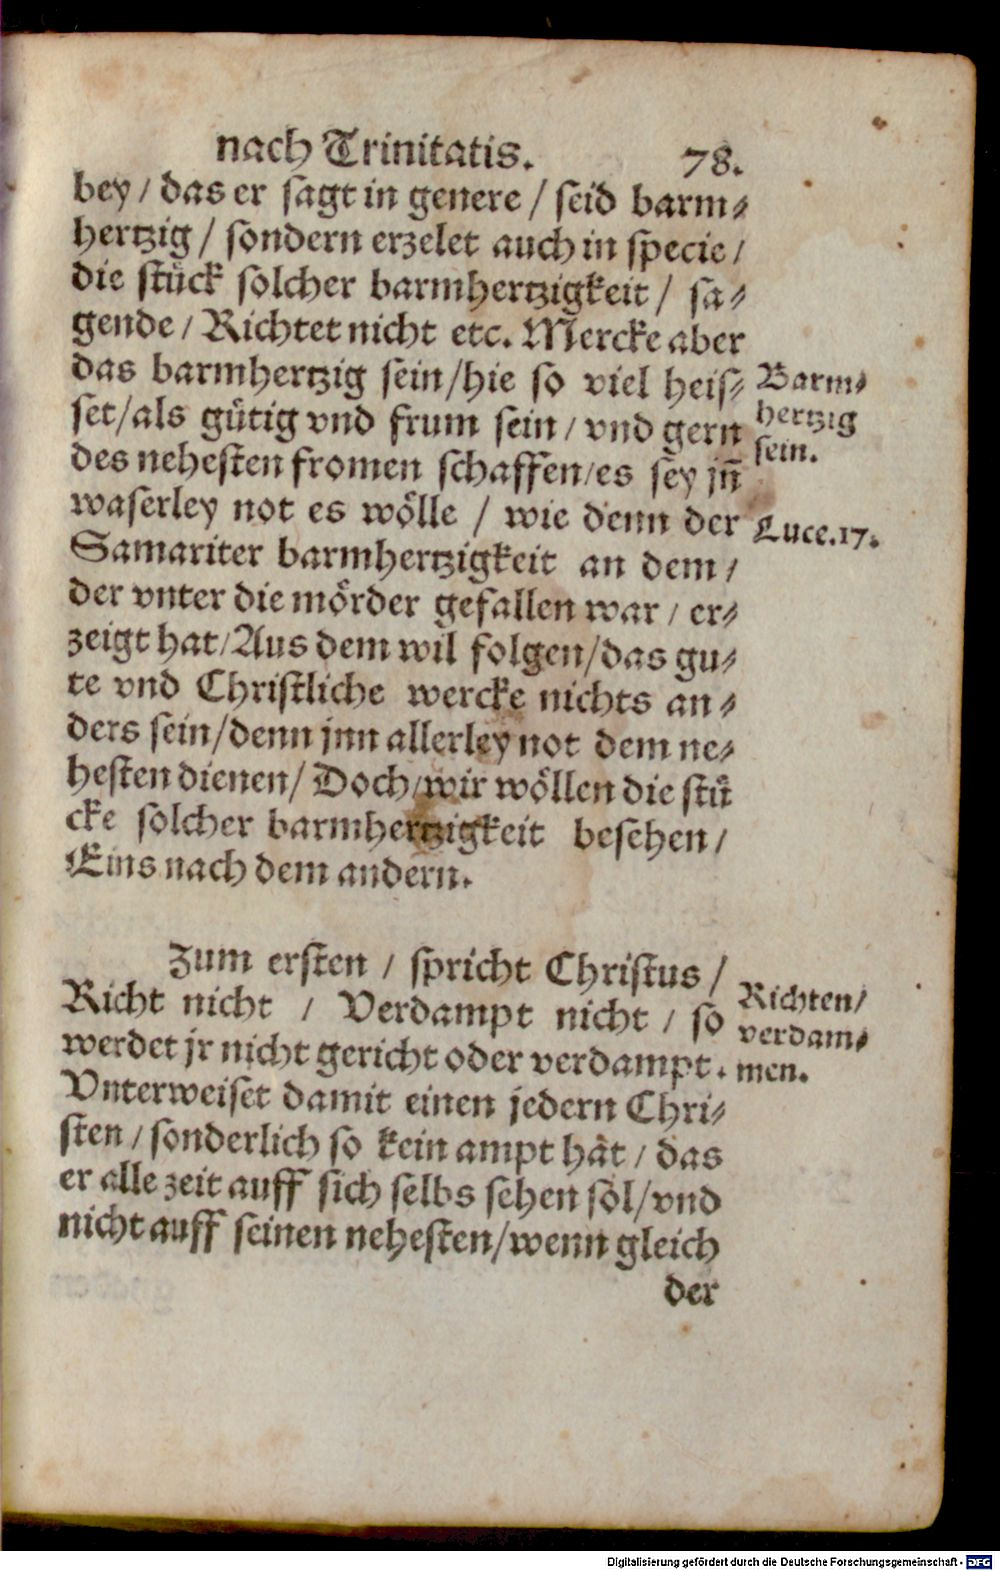 nach Trinitatis. 78.
bey / das er sagt in genere / seid barm⸗
hertzig / sondern erzelet auch in specie /
die stück solcher barmhertzigkeit / sa⸗
gende / Richtet nicht etc. Mercke aber
das barmhertzig sein / hie so viel heis⸗
set / als gütig vnd frum sein / vnd gern
des nehesten fromen schaffen / es sey jñ
waserley not es wölle / wie denn der
Samariter barmhertzigkeit an dem /
der vnter die mörder gefallen war / er⸗
zeigt hat / Aus dem wil folgen / das gu⸗
te vnd Christliche wercke nichts an⸗
ders sein / denn jnn allerley not dem ne⸗
hesten dienen / Doch / wir wöllen die stü
cke solcher barmhertzigkeit besehen /
Eins nach dem andern.
Barm⸗
hertzig
sein.
Luce.17.
Zum ersten / spricht Christus /
Richt nicht / Verdampt nicht / so
werdet jr nicht gericht oder verdampt.
Vnterweiset damit einen jedern Chri⸗
sten / sonderlich so kein ampt hat / das
er alle zeit auff sich selbs sehen sol / vnd
nicht auff seinen nehesten / wenn gleich
der
Richten /
verdam⸗
men.
Digitalisierung gefördert durch die Deutsche Forschungsgemeinschaft - DFG